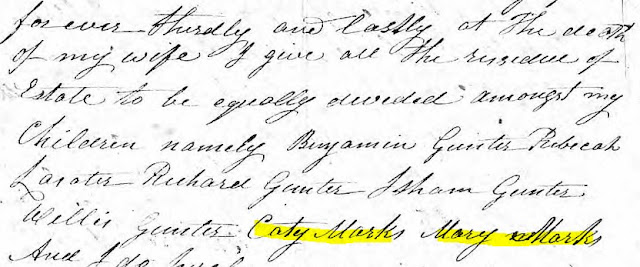 for ever thurdly and lastly at the death
of my wife I give all the residue of
Estate to be equally devided amongst my
Children namely Benjamin Gunter Rebecah
Lasater Richard Gunter Isham Gunter
Willis Gunter Caty Marks Mary Marks
And I do